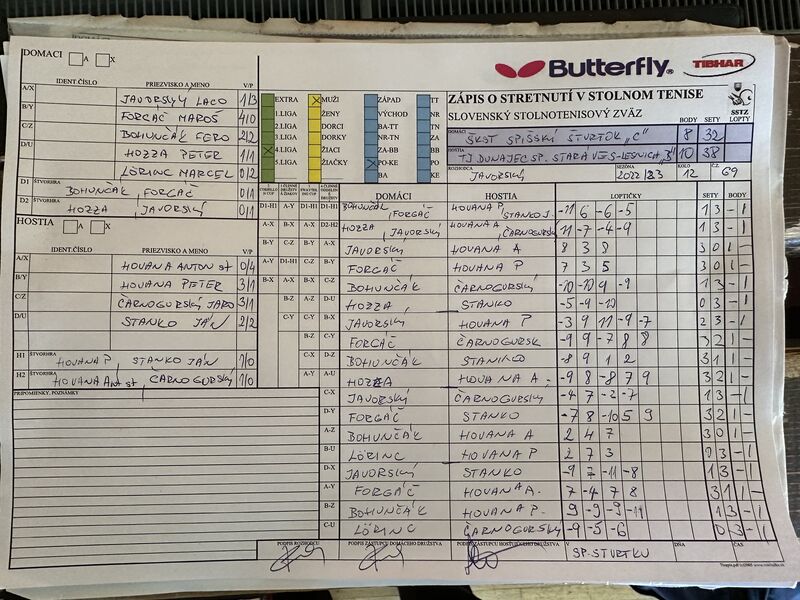 DOMACI A X
Butterfly
TIBHAR
IDENT.ČÍSLO PRIEZVISKO A MENO V/P
A/X JAVORSKÝ LACO 1/3
B/Y FORGÁČ MAROŠ 4/0
C/Z BOHUNČÁK FERO 2/2
D/U HOZZA PETER 1/1
LÖRINC MARCEL 0/2
D1 ŠTVORHRA BOHUNČÁK, FORGÁČ 0/1
D2 ŠTVORHRA HOZZA, JAVORSKÝ 0/1
EXTRA MUŽI ZÁPAD TT
1.LIGA ŽENY VÝCHOD NR
2.LIGA DORCI BA-TT TN
3.LIGA DORKY NR-TN ZA
4.LIGA ŽIACI ZA-BB BB
5.LIGA ŽIAČKY PO-KE PO
BA KE
ZÁPIS O STRETNUTÍ V STOLNOM TENISE
SLOVENSKÝ STOLNOTENISOVÝ ZVÄZ
SSTZ
BODY SETY LOPTY
DOMÁCI ŠKST SPIŠSKÝ ŠTVRTOK "C" 8 32
HOSTIA TJ DUNAJEC SP. STARÁ VES-LESNICA "B" 10 38
ROZHODCA JAVORSKÝ SEZÓNA 2022/23 KOLO 12 Č 69
HOSTIA A X
IDENT.ČÍSLO PRIEZVISKO A MENO V/P
A/X HOVANA ANTON st 0/4
B/Y HOVANA PETER 3/1
C/Z ČARNOGURSKÝ JARO 3/1
D/U STANKO JÁN 2/2
H1 ŠTVORHRA HOVANA P, STANKO JÁN 1/0
H2 ŠTVORHRA HOVANA Ant st, ČARNOGURSKÝ 1/0
PRIPOMIENKY, POZNÁMKY
DOMÁCI HOSTIA LOPTIČKY SETY BODY
D1-H1 A-Y D1-H1 D1-H1 BOHUNČÁK, FORGÁČ HOVANA P, STANKO J. -11 6 -6 -5 1 3 - 1
A-X B-X A-X D2-H2 HOZZA, JAVORSKÝ HOVANA A, ČARNOGURSKÝ 11 -7 -4 -9 1 3 - 1
B-Y C-Z B-Y A-X JAVORSKÝ HOVANA A 8 3 8 3 0 1 -
A-Y D1-H1 C-Z B-Y FORGÁČ HOVANA P 7 3 5 3 0 1 -
B-X A-X D1-H1 C-Z BOHUNČÁK ČARNOGURSKÝ -10 -10 9 -9 1 3 - 1
B-Z A-Z D-U HOZZA STANKO -5 -9 -10 0 3 - 1
C-Y C-Y B-X JAVORSKÝ HOVANA P -3 9 11 -9 -7 2 3 - 1
B-Z C-Y FORGÁČ ČARNOGURSK -9 9 -7 8 8 3 2 1 -
C-X D-Z BOHUNČÁK STANKO -8 9 1 2 3 1 1 -
A-Y A-U HOZZA HOVANA A. -9 8 -8 7 9 3 2 1 -
C-X JAVORSKÝ ČARNOGURSKÝ -4 7 -2 -7 1 3 - 1
D-Y FORGÁČ STANKO -7 8 -10 5 9 3 2 1 -
A-Z BOHUNČÁK HOVANA A 2 4 7 3 0 1 -
B-U LÖRINC HOVANA P 1 3 - 1
D-X JAVORSKÝ STANKO -9 7 -11 -8 1 3 - 1
A-Y FORGÁČ HOVANA A. 7 -4 7 8 3 1 1 -
B-Z BOHUNČÁK HOVANA P. 1 3 - 1
C-U LÖRINC ČARNOGURSKÝ -9 -5 -6 0 3 - 1
PODPIS ROZHODCU PODPIS ZÁSTUPCU DOMÁCEHO DRUŽSTVA PODPIS ZÁSTUPCU HOSŤUJÚCEHO DRUŽSTVA V SP. ŠTVRTKU DŇA ČAS